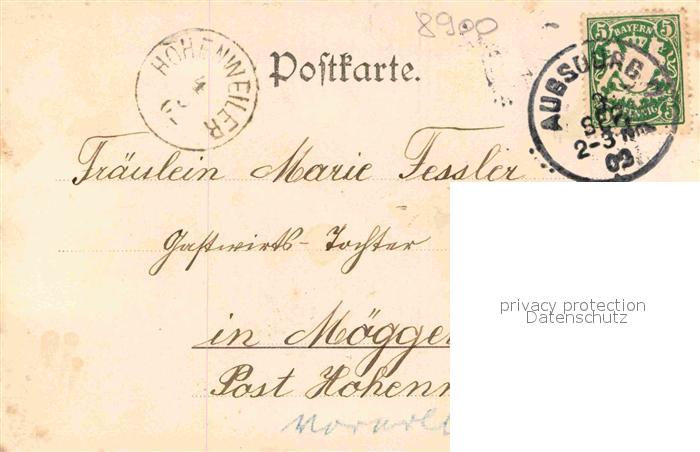 8900
HOHENWEILER
4
Postkarte.
5 BAYERN 5
AUGSBURG
SEP.
2-3 Nm
09
Fräulein Marie Fessler
Gastwirts-Tochter
in Mögge
Post Hohen
Vorarl
privacy protection
Datenschutz